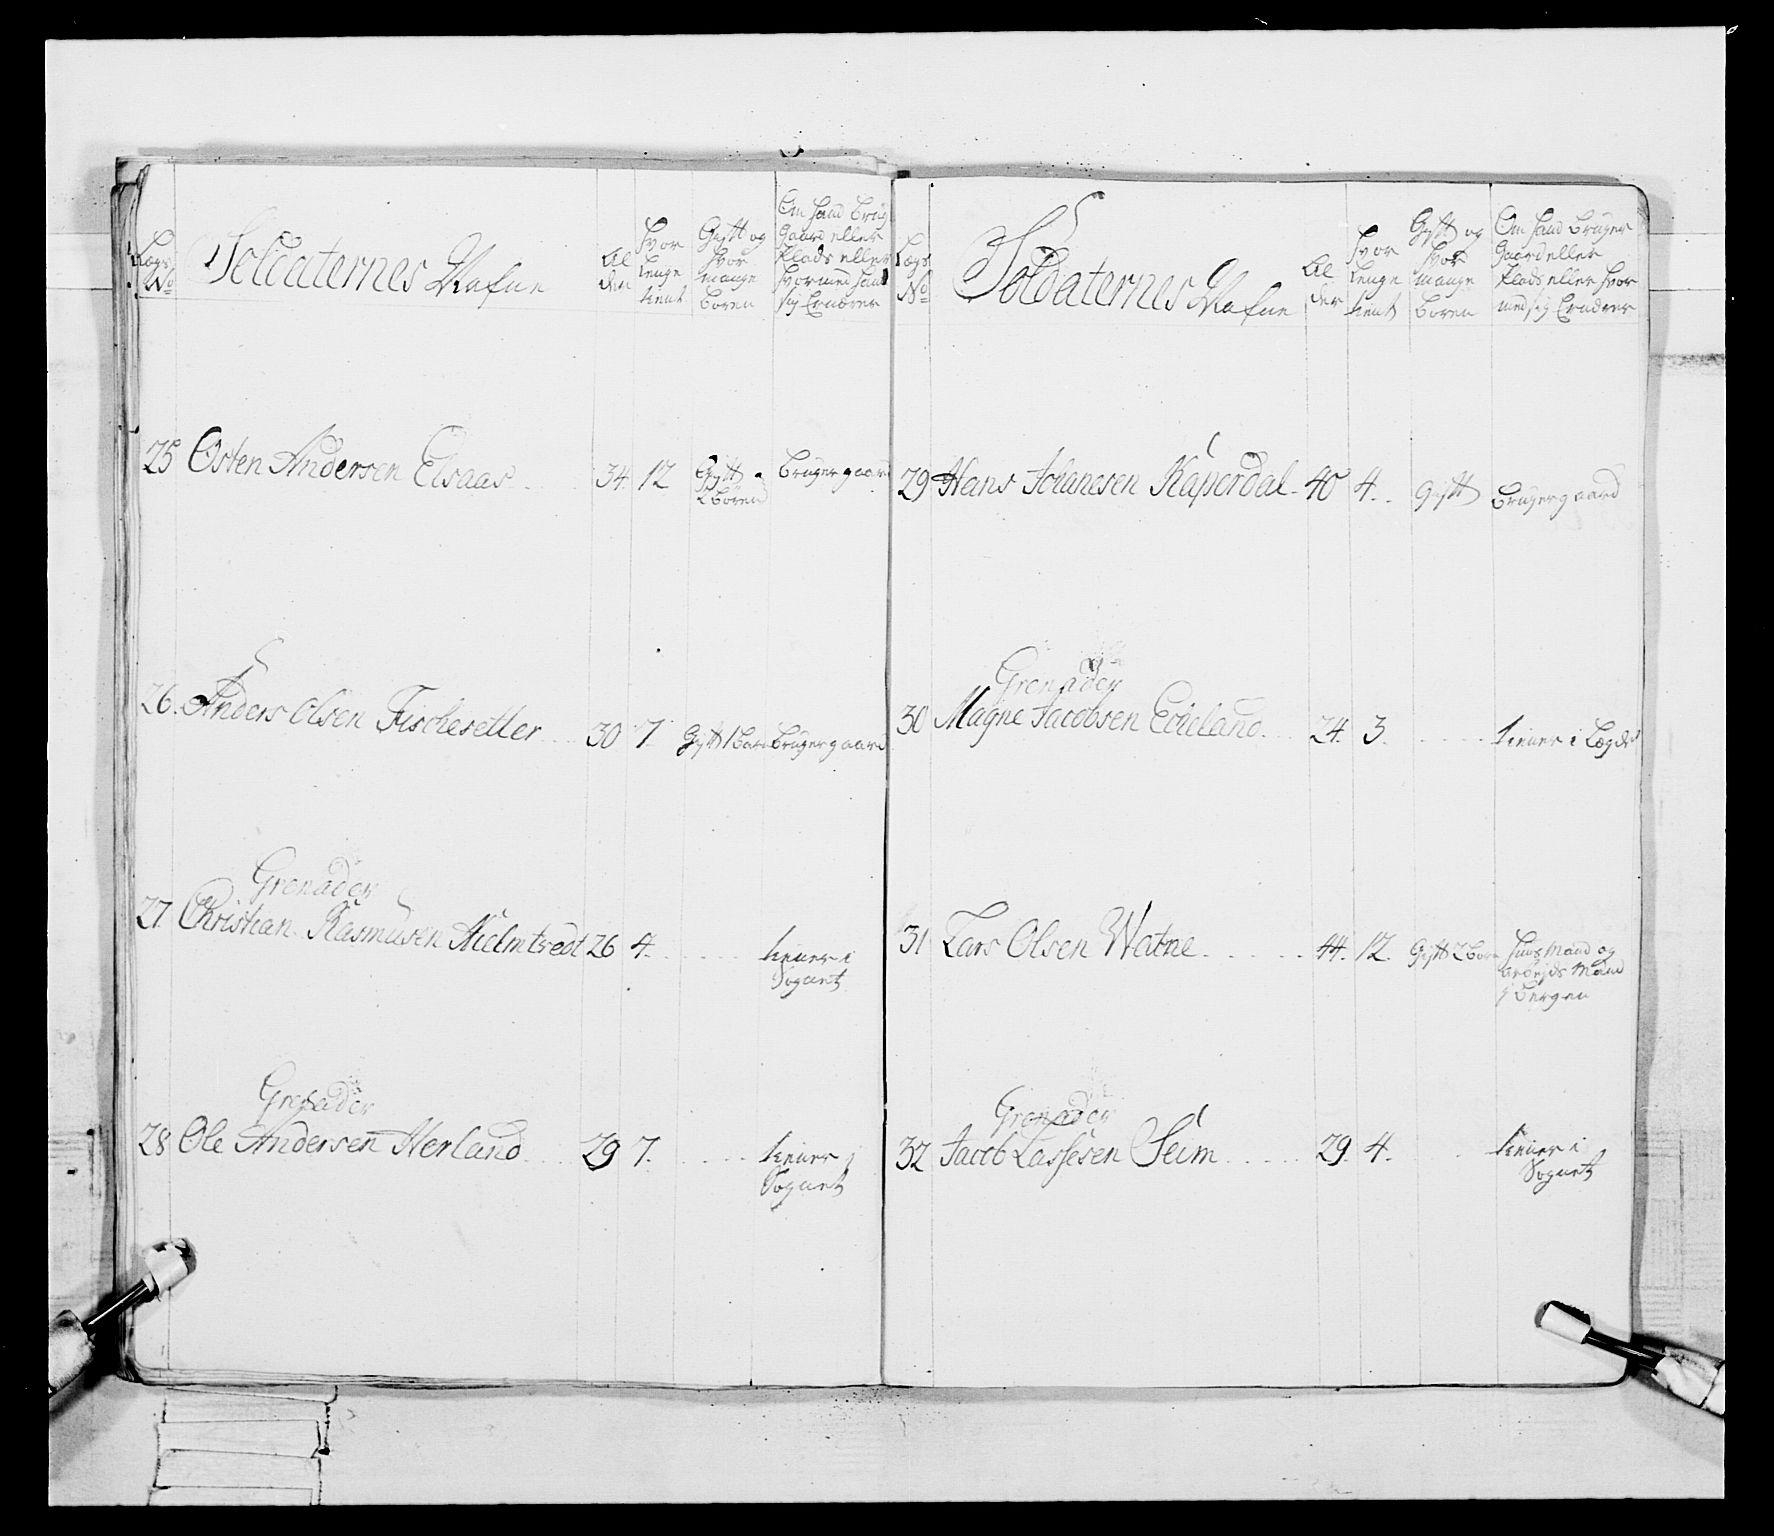 Lægs No
Soldaternes Nafne
Al der
Hvor lenge tient
Gift og hvor mange Børen
Om hand brug Gaard eller Plads eller hvormed hand sig Ernærer
25 Osten Andersen Elsaas 34. 12 Gift 2 børen Bruger gaard
26. Anders Olsen Fischesetter 30 7. Gift 1 barn Bruger gaard
Grenader
27 Christian Rasmusen Hielmtvedt 26 4. tiener i
Sognet
Grenader
28 Ole Andersen Herland 29 7. tiener i
Sognet
Lægs No
Soldaternes Nafne
Al der
Hvor lenge tient
Gift og hvor mange Børen
Om hand bruger Gaard eller Plads eller hvor med sig Ernærer
29 Hans Johanesen Kaperdal 40 4. Gift Bruger gaard
Grenader
30 Magne Jacobsen Echeland 24. 3. tiener i Lægdet
31 Lars Olsen Watne 44. 12. Gift 2 børn huusMand og
arbejds Mand
i Bergen
Grenader
32 Jacob Lassesen Seim 29. 4. tiener i
Sognet